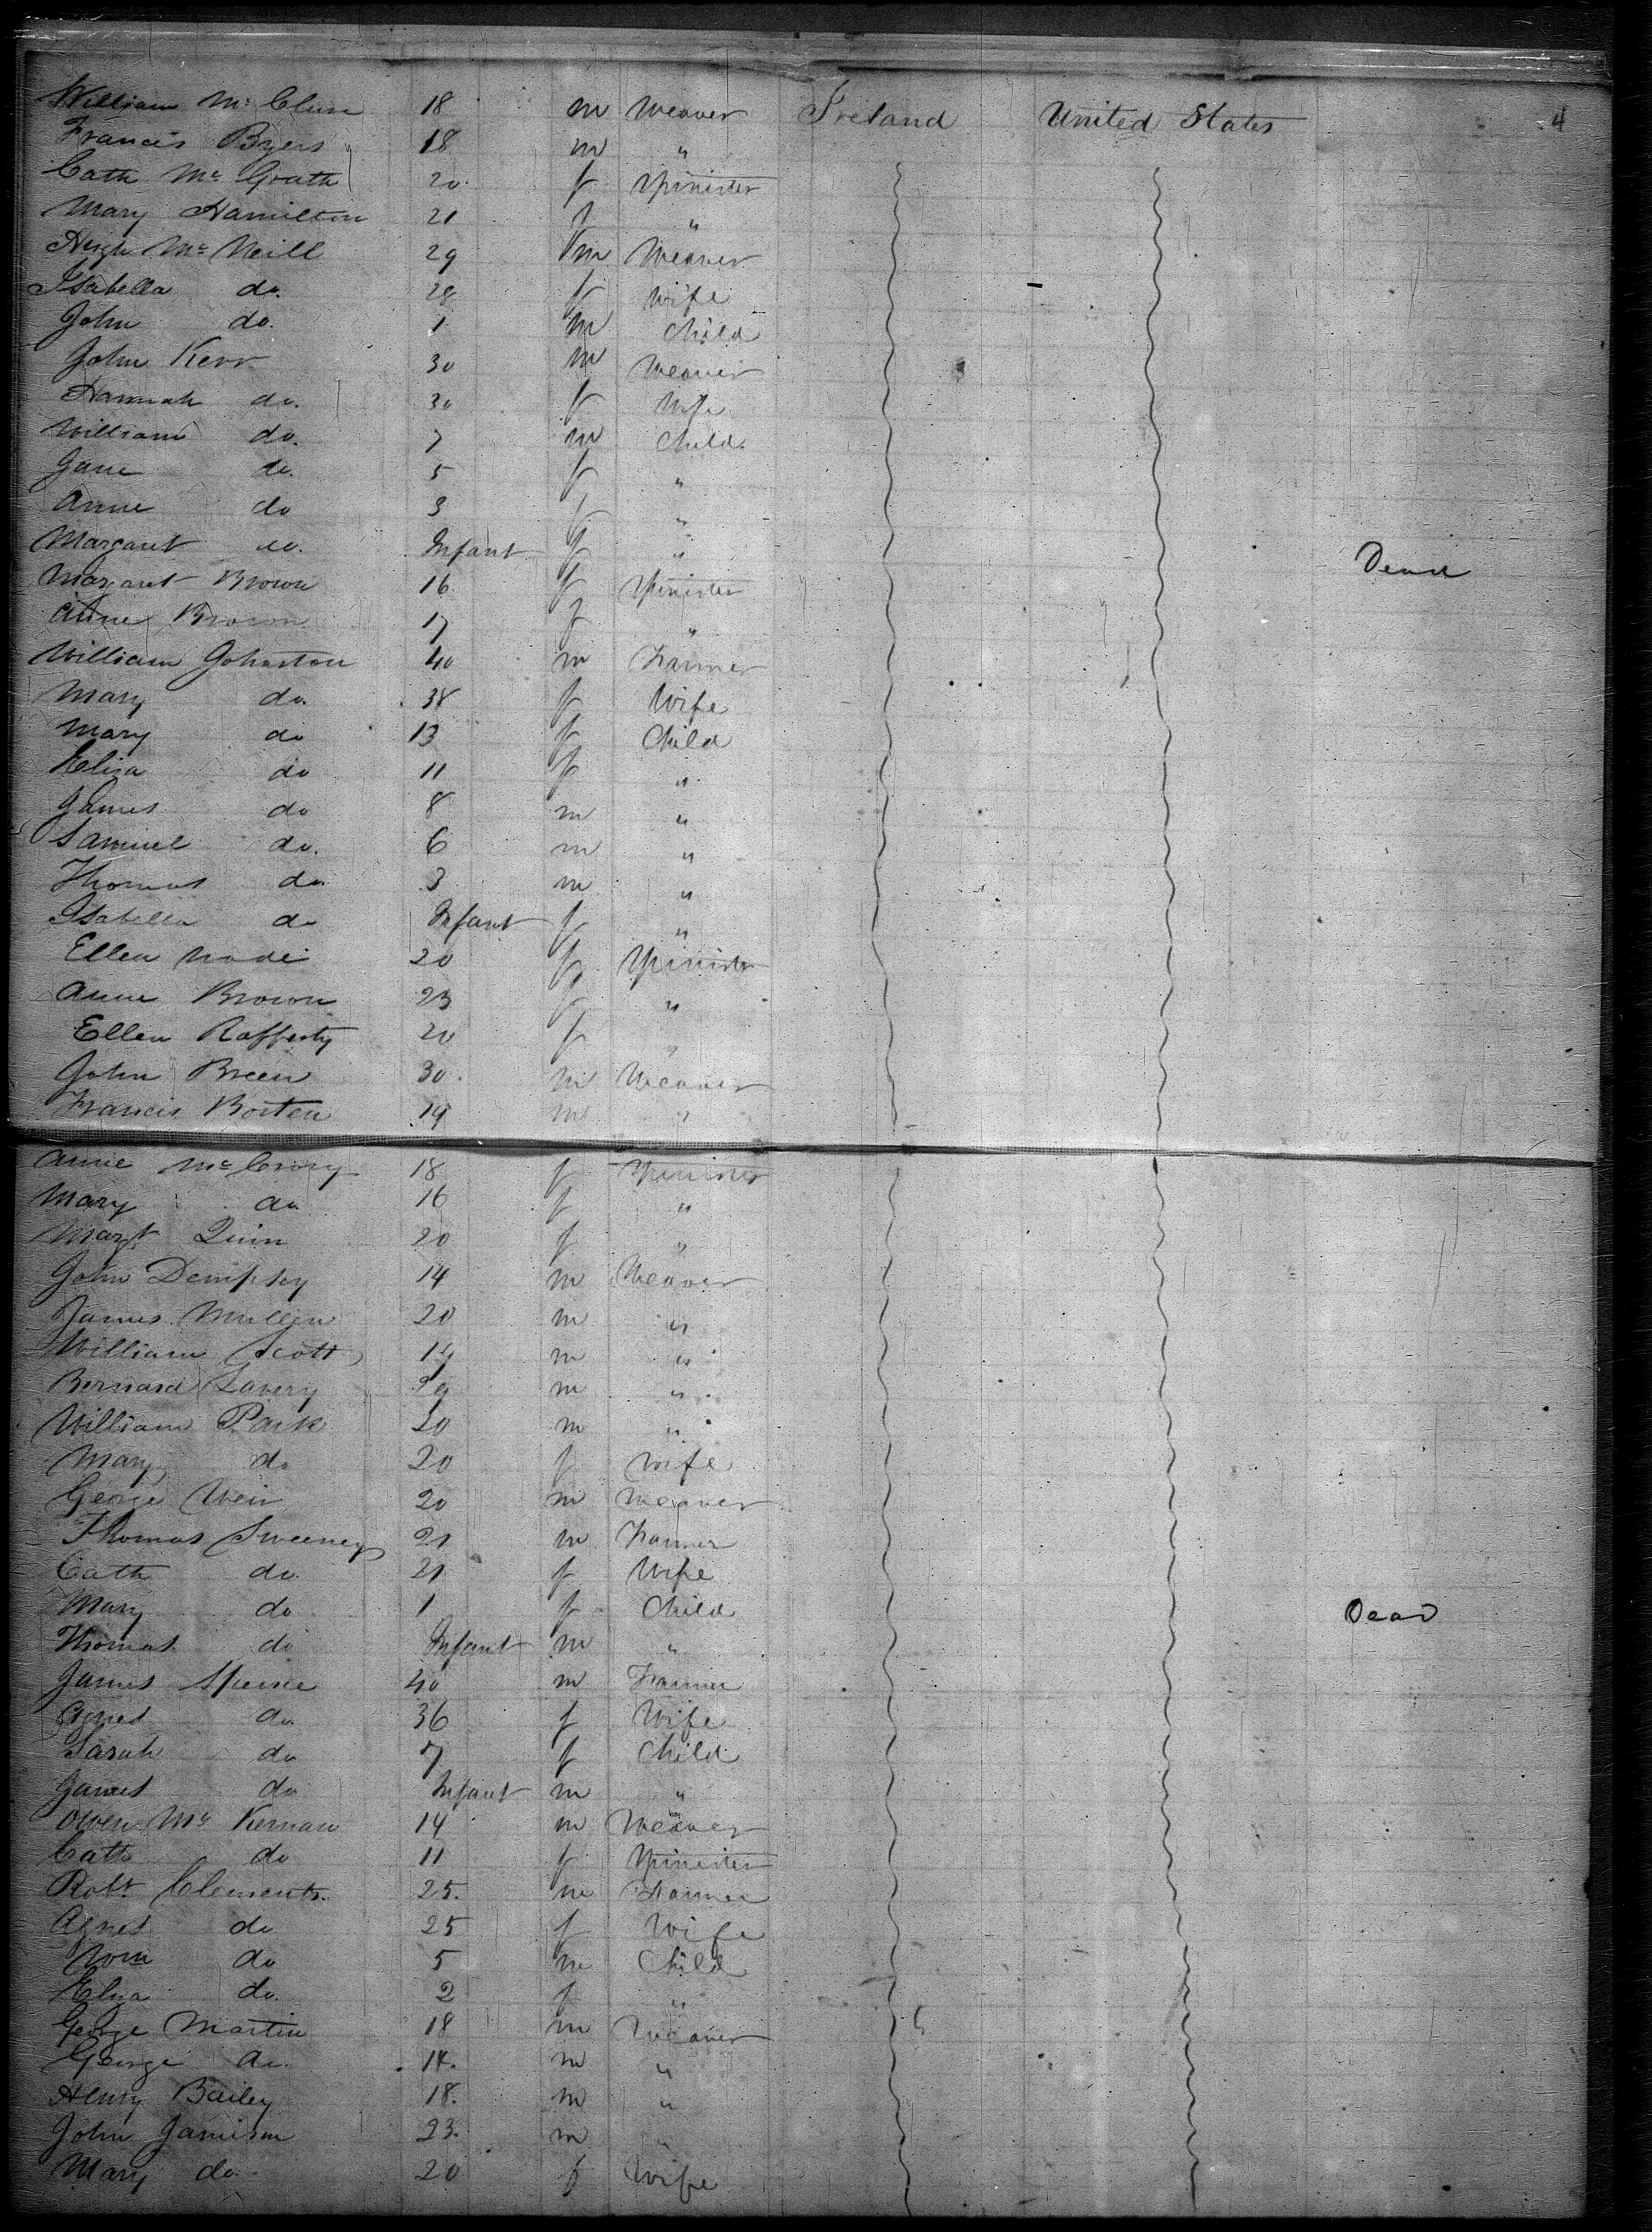 William Mc Clure 18 m Weaver Ireland United States 4
Francis Byers 18 m "
Cath Mc Grath 20 f Spinster
Mary Hamilton 21 f "
Hugh Mc Neill 29 m Weaver
Isabella do. 28 f Wife
John do. 1 m Child
John Kerr 30 m Weaver
Hannah do. 30 f Wife
William do. 7 m Child
Jane do. 5 f "
Anne do 3 f "
Margaret do. Infant f " Dead
Margaret Brown 16 f Spinster
Anne Brown 17 f "
William Johnston 40 m Farmer
Mary do. 38 f Wife
Mary do 13 f Child
Eliza do 11 f "
James do 8 m "
Samuel do. 6 m "
Thomas do 3 m "
Isabella do Infant f "
Ellen 20 f Spinster
Anne Brown 23 f "
Ellen Rafferty 20 f "
John Breen 30 m Weaver
Francis Borten 19 m "
Anne McCrory 18 f Spinster
Mary do 16 f "
Margt Quinn 20 f "
John Dempsey 14 m Weaver
James Mullen 20 m "
William Scott 19 m "
Bernard Lavery 29 m "
William Park 20 m "
Mary do 20 f Wife
George Weir 20 m Weaver
Thomas Sweeney 21 m Farmer
Cath do. 21 f Wife
Mary do 1 f Child Dead
Thomas do Infant m "
James Spence 40 m Farmer
Agnes do. 36 f Wife
Sarah do 7 f Child
James do Infant m "
Owen Mc Kernan 14 m Weaver
Cath do 11 f Spinster
Robt Clements 25 m Farmer
Agnes do 25 f Wife
Wm do 5 m Child
Eliza do. 2 f "
George Martin 18 m Weaver
George do. 14 m "
Henry Bailey 18. m "
John Jamison 23. m "
Mary do. 20 f Wife